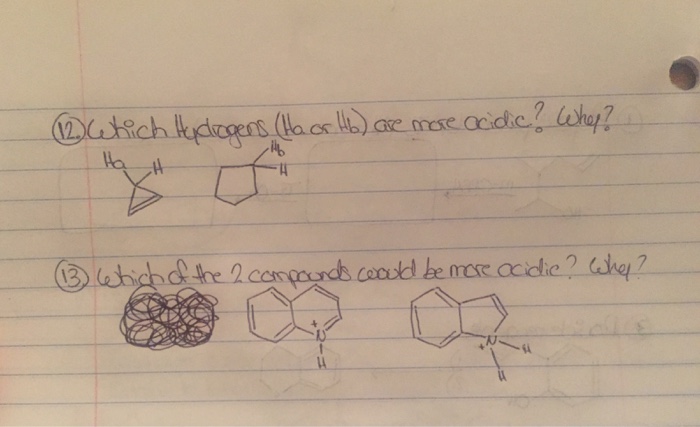 12. Which Hydrogens (Ha or Hb) are more acidic? Why?
Ha H Hb H
13 Which of the 2 compounds would be more acidic? Why?
+ N H + N H H